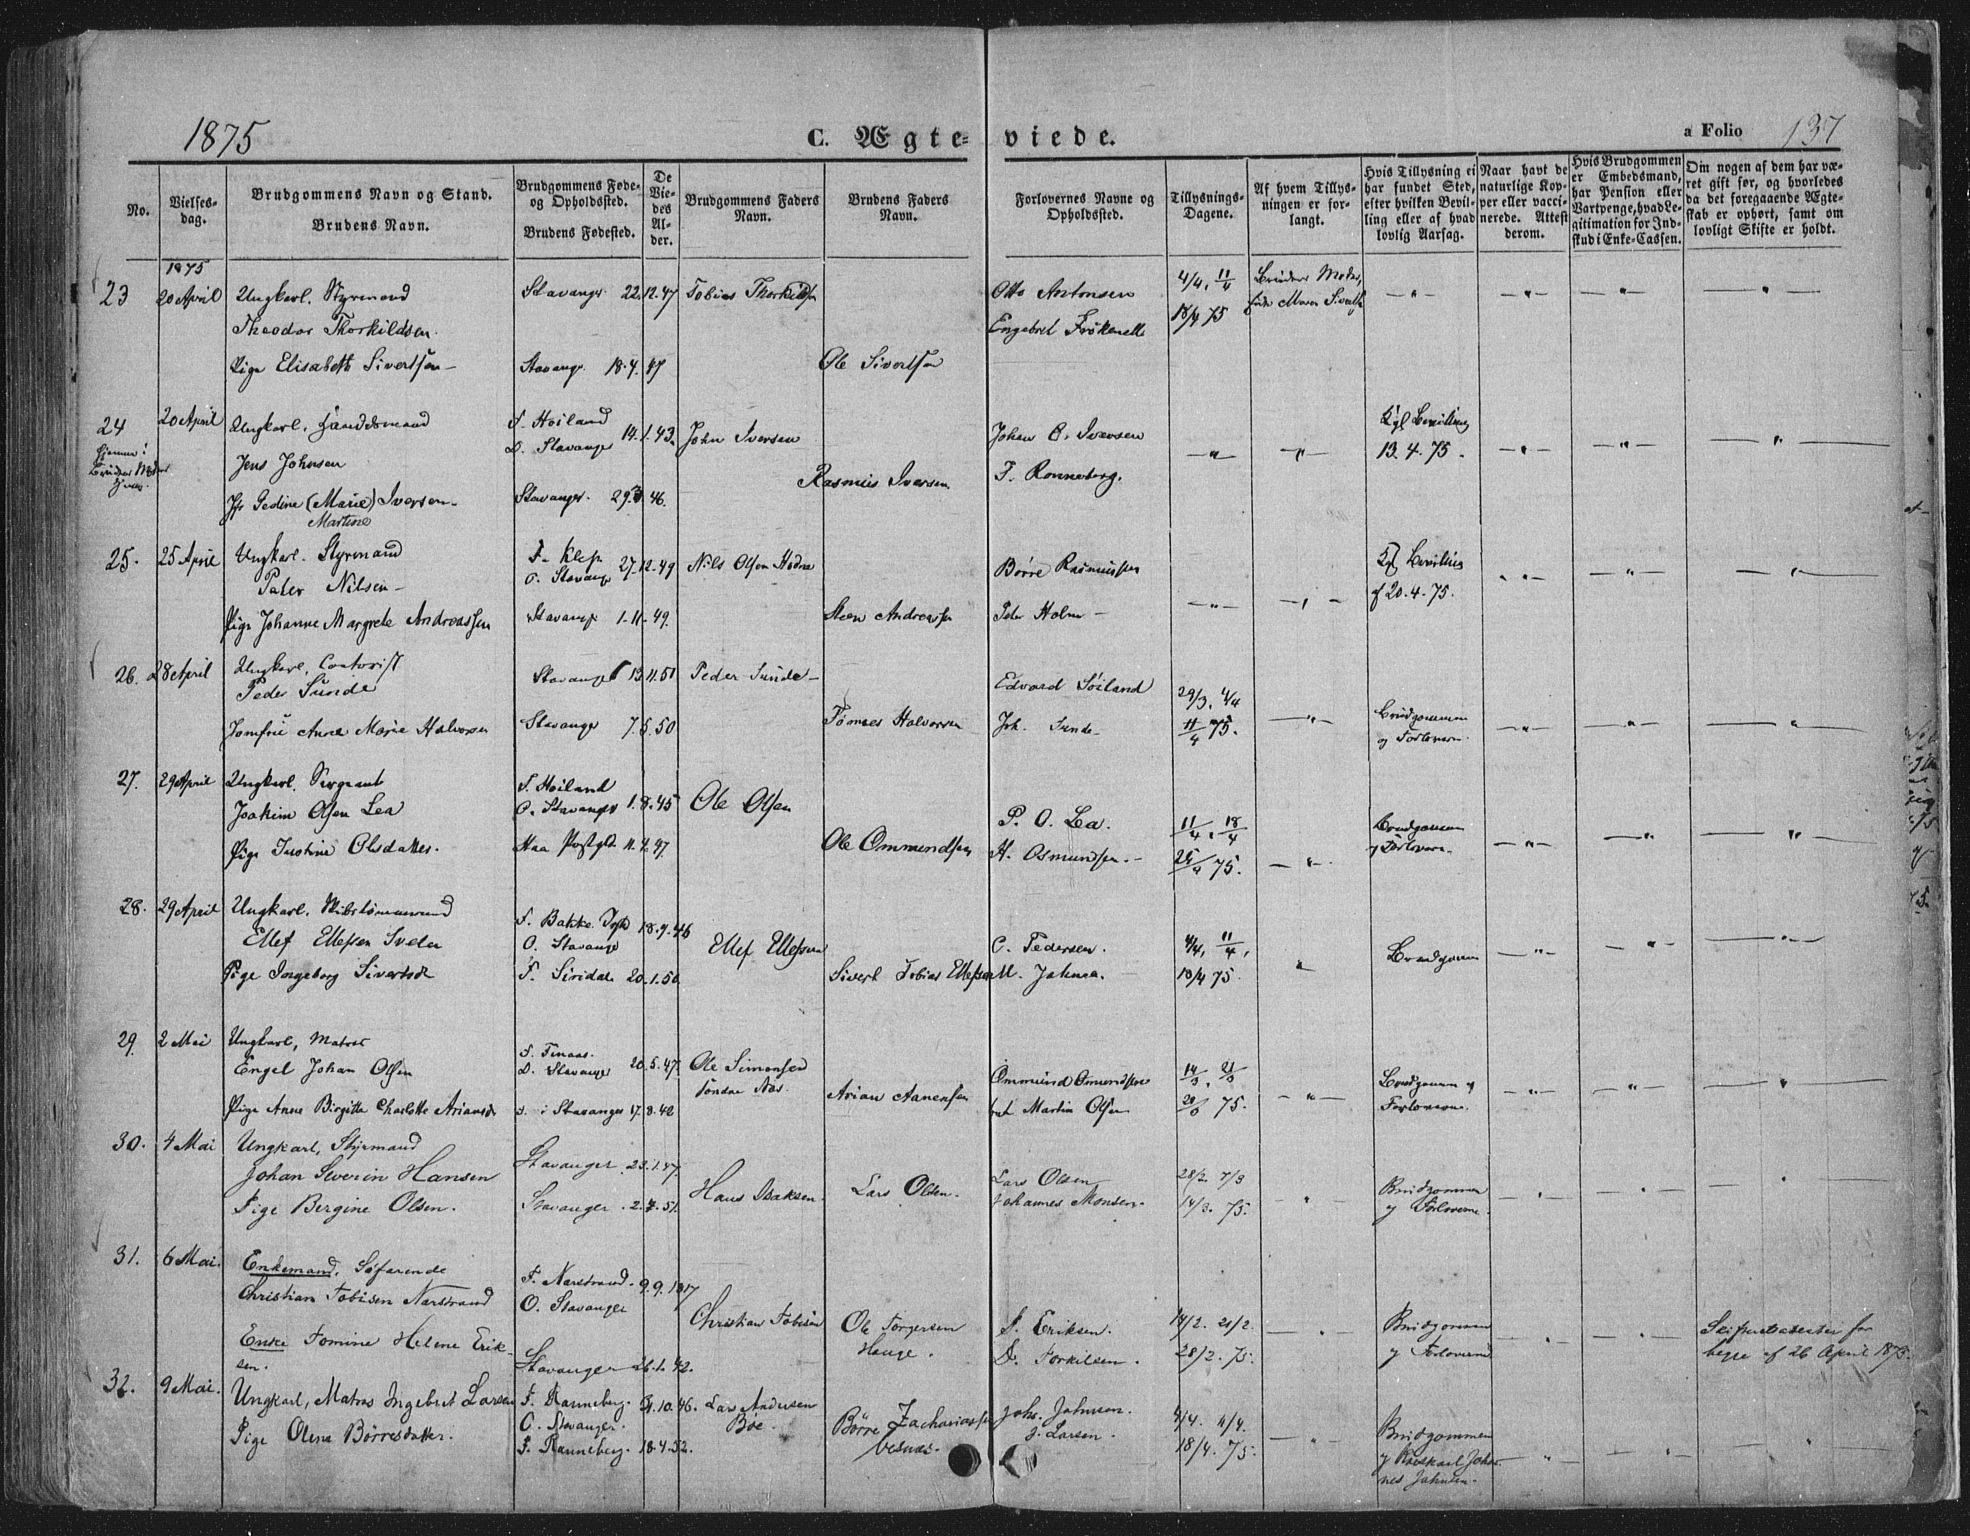 1875
C. Ægte-
viede.
a Folio 137
No.
Vielses-
dag.
Brudgommens Navn og Stand.
Brudens Navn.
Brudgommens Føde-
og Opholdssted.
Brudens Fødested.
De
Vie-
des
Al-
der.
Brudgommens Faders
Navn.
Brudens Faders
Navn.
Forlovernes Navne og
Opholdssted.
Tillysnings-
Dagene.
Af hvem Tillys-
ningen er for-
langt.
Hvis Tillysning ei
har fundet Sted,
efter hvilken Bevil-
ling eller af hvad
lovlig Aarsag.
Naar havt de
naturlige Kop-
per eller vacci-
nerede. Attest
derom.
Hvis Brudgommen
er Embedsmand,
har Pension eller
Vartpenge, hvad Le-
gitimation for Ind-
skud i Enke-Cassen.
Om nogen af dem har væ-
ret gift før, og hvorledes
da det foregaaende Ægte-
skab er ophørt, samt om
lovligt Skifte er holdt.
1875
23 20 April Ungkarl. Styrmand Stavanger 22.12.47 Tobias Thorkildsen Otto Antonsen 4/4, 11/4 Brudens Moder,
Theodor Thorkildsen. Engebret 18/4 75
Pige Elisabeth Sivertsen Stavanger 18.4.47 Ole Sivertsen
24 20 April Ungkarl, Handelsmand F. Høiland 14.1.43 John Iversen Johan O. Iversen Kgl Bevilling
Jens Johnsen O. Stavanger F. Ronneberg. 13.4.75.
Jfr Gedine (Marie) Iversen Stavanger 46. Rasmus Iversen
Martine
25. 25 April Ungkarl. Styrmand F. Klep 27.12.49 Nils Olsen Hodne Børre Rasmussen Kgl Bevilling
Peter Nilsen O. Stavanger af 20.4.75.
Pige Johanne Margrete Andreassen Stavanger 1.11.49. Steen Andreassen Peter Holm
26. 28 April Ungkarl, Contorist Stavanger 13.11.50 Peder Sunde Edvard Søiland 29/3, 4/4
Peder Sunde
Jomfru Anne Marie Halvorsen Stavanger 7.5.50 Tønnes Halvorsen Joh. Sunde 11/4 75. Brudgommen
og Forloverne.
27. 29 April Ungkarl. Sergeant F. Høiland 1.8.45 Ole Olsen P. O. Lea. 11/4, 18/4 Brudgommen
Joakim Olsen Lea O. Stavanger
Pige Justine Olsdatter. Haa Præstgld 11.4.47 Ole Ommundsen H. Osmundsen. 25/4 75. og Forlovere
28. 29 April Ungkarl. Skibstømmermand F. Bakke O. Stavanger Ellef Ellefsen C. Pedersen. 4/4, 11/4, Brudgommen
Ellef Ellefsen
Pige Ingeborg Sivertsdr F. Sirdal 20.1.50 Sivert Tobias Ellefsen M. Johnsen. 18/4 75.
29. 2 Mai Ungkarl, Matros F. Finaas. 20.5.47. Ole Simonsen Ommund Omundsen 14/3, 21/3 Brudgommen og
Engel Johan Olsen O. Stavanger
Pige Anne Birgitte Charlotte Ariansd i Stavanger 17.8.42 Arian Aanensen Martin Olsen 75. Forloverne.
30. 4 Mai Ungkarl, Styrmand Stavanger 23.1.47. Hans Isaksen. Lars Olsen. Lars Olsen 28/2. 7/3 Brudgommen
Johan Severin Hansen
Pige Bergine Olsen. Stavanger Johannes Monsen. 14/3. 75. og Forloverne.
31. 6 Mai. Enkemand. Søfarende F. Narstrand. 9.9.1817
Christian Tobisen Narstrand O. Stavanger Christian Tobisen Ole Torgersen S. Eriksen. 14/2. 21/2. Brudgommen Skifteattester for
Enke Tomine Helene Erik- Hauge. D. Torkilsen. 28/2. 75. og Forloverne begge af 26 April 1875.
sen. Stavanger 26.1.42.
32. 9 Mai. Ungkarl, Matros Ingebret Larsen F. Ranneberg. 31.10.46. Lars Andersen Johs. Johnsen. 4/4. 11/4.
Pige Olena Børresdatter. O. Stavanger. Bøe Børre Zachariassen J. Larsen. 18/4. 75. Brudgommen
F. Ranneberg. 18.4.52. og Røvskarl Johan-
nes Johnsen.